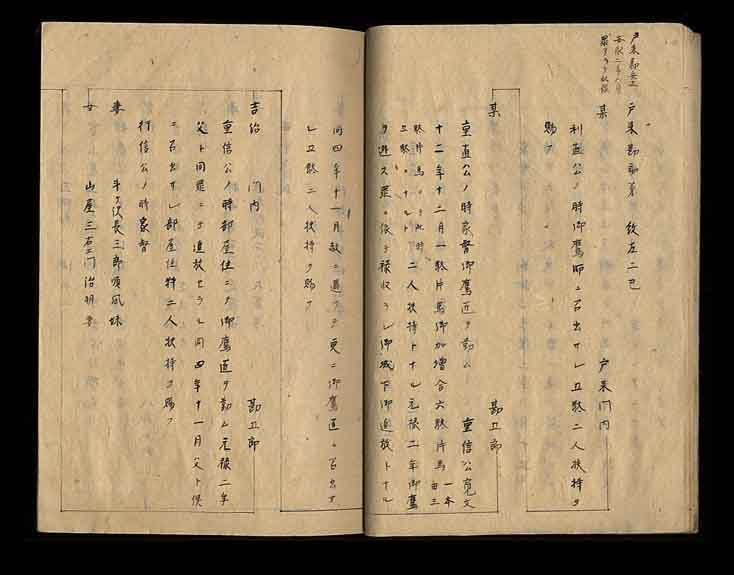 戸来勘兵衛
戸来勘兵衛弟 紋左二巴
某 戸来門内
利直公ノ時御鷹師ニ召出サレ五駄二人扶持ヲ
賜フ
某 勘五郎
重直公ノ時家督御鷹匠ヲ勤ム 重信公寛文
十二年十二月一駄片馬御加増合六駄片馬
二人扶持トナル元禄二年御鷹
ヲ逃ス罪ニ依テ禄収ラレ御城下御追放トナル
同四年十一月赦ニ遇テ更ニ御鷹匠ニ召出サ
レ五駄二人扶持ヲ賜フ
吉治 門内 勘五郎
重信公ノ時部屋住ニテ御鷹匠ヲ勤ム元禄二年
父ト同罪ニテ追放セラル同四年十一月父ト倶
ニ召出サレ部屋住料二人扶持ヲ賜フ
行信公ノ時家督
妻 斗ヶ沢長三郎順風妹
女 山屋三右エ門治明妻